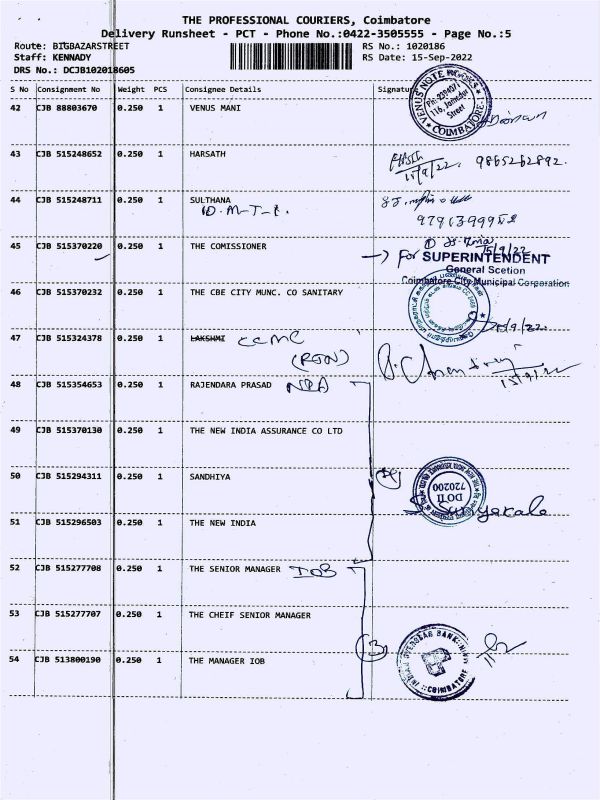 THE PROFESSIONAL COURIERS, Coimbatore
Delivery Runsheet - PCT - Phone No.:0422-3505555 - Page No.:5
Route: BIGBAZARSTREET
RS No.: 1020186
Staff: KENNADY
RS Date: 15-Sep-2022
DRS No.: DCJB102018605
S No Consignment No Weight PCS Consignee Details Signatur
42 CJB 88803670 0.250 1 VENUS MANI
VENUS NOTE
Ph: 2394071
116, Jamedar
Street
COIMBATORE-1
43 CJB 515248652 0.250 1 HARSATH
15/9/22. 9865262892.
44 CJB 515248711 0.250 1 SULTHANA
D.M-T-C.
45 CJB 515370220 0.250 1 THE COMISSIONER
15/9/22
For SUPERINTENDENT
General Scetion
Coimbatore City Municipal Corporation
46 CJB 515370232 0.250 1 THE CBE CITY MUNC. CO SANITARY
15/9/22.
47 CJB 515324378 0.250 1 LAKSHMI CCMC
15/9/22
48 CJB 515354653 0.250 1 RAJENDARA PRASAD NIA
49 CJB 515370130 0.250 1 THE NEW INDIA ASSURANCE CO LTD
50 CJB 515294311 0.250 1 SANDHIYA
DO II
720200
51 CJB 515296503 0.250 1 THE NEW INDIA
52 CJB 515277708 0.250 1 THE SENIOR MANAGER IOB
53 CJB 515277707 0.250 1 THE CHEIF SENIOR MANAGER
3
54 CJB 513800190 0.250 1 THE MANAGER IOB
INDIAN OVERSEAS BANK
COIMBATORE